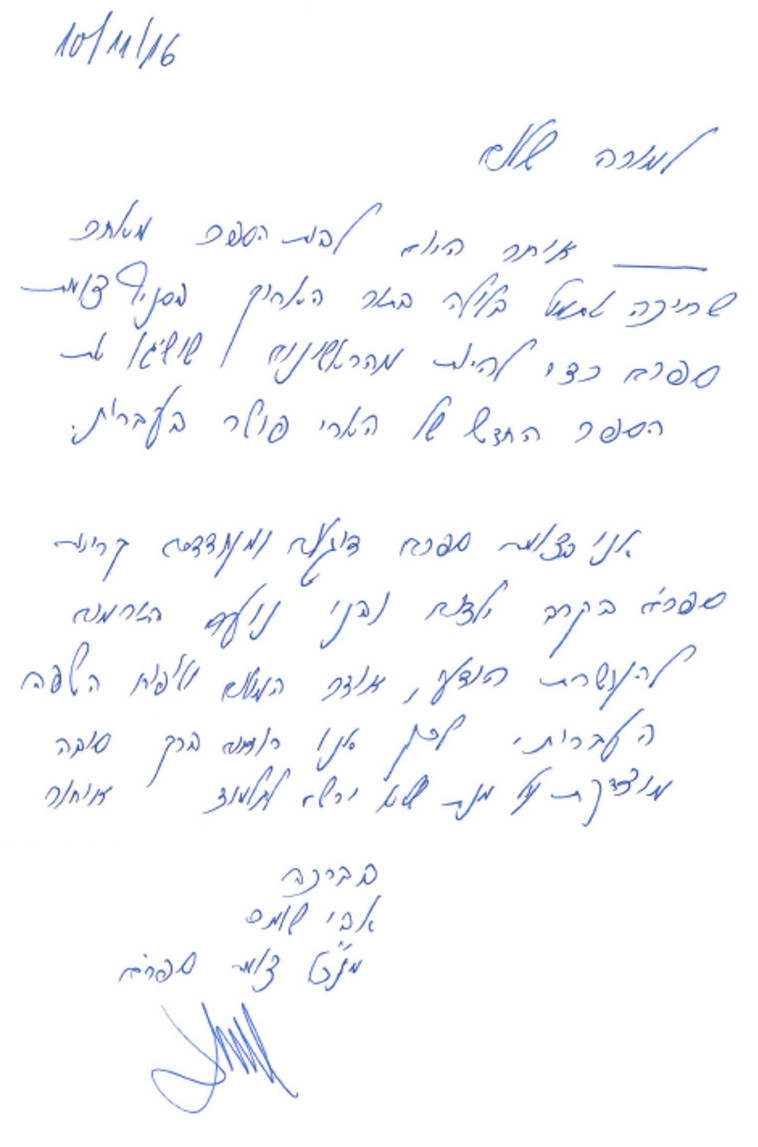 10/11/16
למורה שלום
_____ איחר היום לבית הספר מאחר
שחיכה אתמול בלילה בתור הארוך בסניף צומת
ספרים כדי להיות מהראשונים שישיגו את
הספר החדש של הארי פוטר בעברית.
אנו בצומת ספרים דוגלים ומעודדים קריאת
ספרים בקרב ילדים ובני נוער התורמת
להעשרת הידע, אוצר המילים וטיפוח השפה
העברית. לכן אנו רואים בכך סיבה
מוצדקת על מנת שלא ירשם לתלמיד איחור
בברכה
אבי שומר
מנכ"ל צומת ספרים